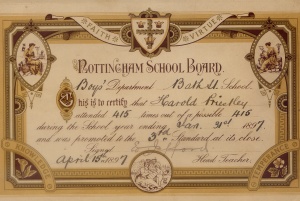 FAITH VIRTUE
NOTTINGHAM SCHOOL BOARD.
Boys' Department Bath St School.
This is to certify that Harold Priestley
attended 415 times out of a possible 415
during the School year ending Jan. 31st 1897
and was promoted to the 3rd Standard at its close
Signed
April 15th 1897 Head Teacher.
KNOWLEDGE TEMPERANCE